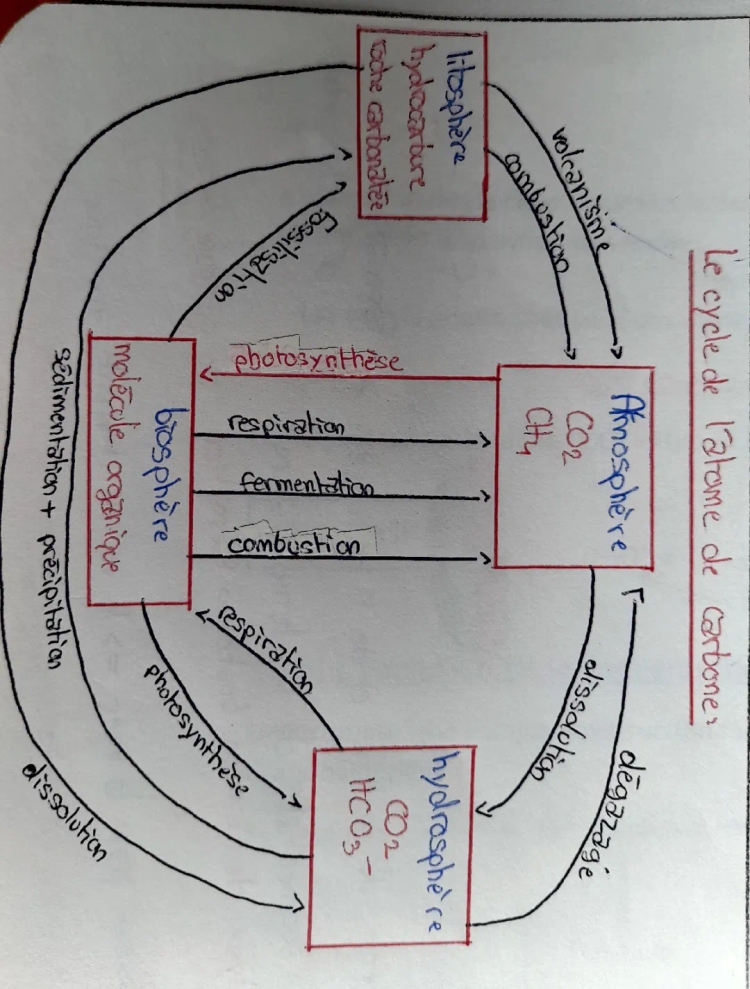 Le cycle de l'atome de carbone:
Atmosphère
CO2
CH4
volcanisme
combustion
dissolution
dégazagé
litosphère
hydrocarbure
roche carbonatée
photosynthèse
respiration
fermentation
combustion
hydrosphère
CO2
HCO3-
fossilisation
biosphère
molécule organique
respiration
photosynthèse
sédimentation + précipitation
dissolution